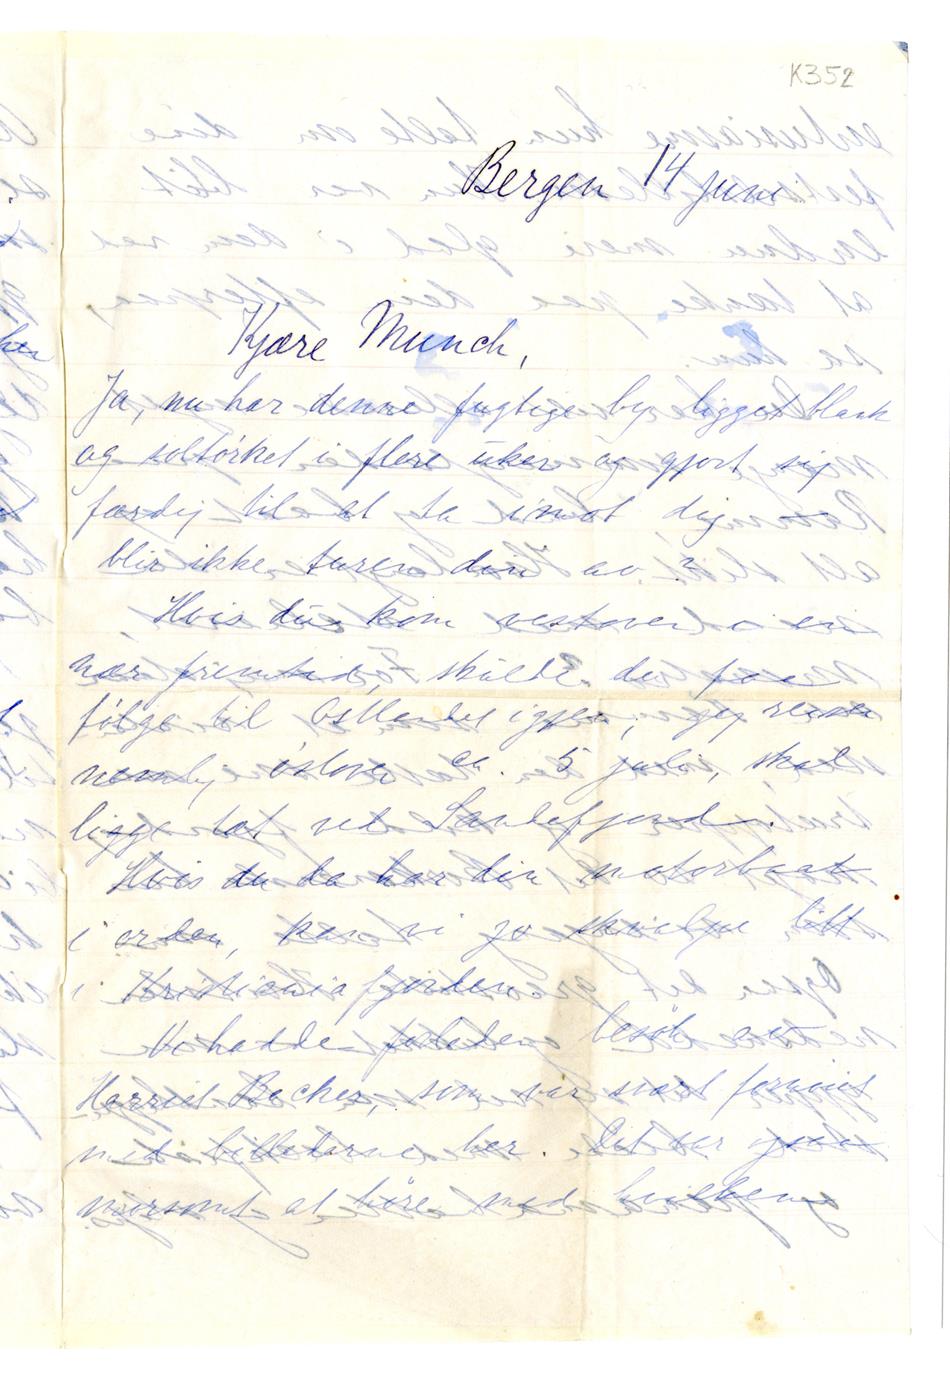 K352
Bergen 14 juni
Kjære Munch,
Ja, nu har denne fugtige by ligget blank
og soltørket i flere uker og gjort sig
færdig til at ta imot dig
blir ikke turen din av?
Hvis du kom vestover i en
nær fremtid, skulde du faa
følge til Østlandet igjen, jeg reiser
nemlig østover ca. 5 juli, skal
ligge tæt ved Sandefjord.
Hvis du da har din motorbaat
i orden, kan vi jo litt
i Kristianiafjorden
Vi hadde besök av
Harriet Backer, som var svært fornøiet
med billederne her. Det var
morsomt at höre med hvilken